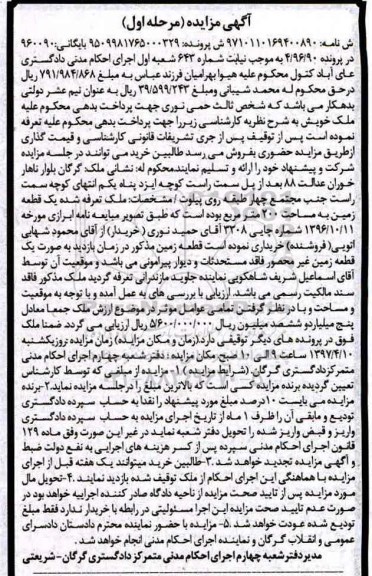 آگهی مزایده (مرحله اول)
ش نامه: ۹۷۱۰۱۱۰۱۶۹۴۰۰۸۹۰ ش پرونده: ۹۵۰۹۹۸۱۷۶۵۰۰۰۳۲۹ بایگانی: ۹۶۰۰۹۰
در پرونده ۴/۹۶/۹۰ به موجب نیابت شماره ۶۴۳ شعبه اول اجرای احکام مدنی دادگستری
علی آباد کتول محکوم علیه هیوا بهرامیان فرزند عباس به مبلغ ۷۹۱/۹۸۴/۸۶۸ ریال
درحق محکوم له محمد شیبانی ومبلغ ۳۹/۵۹۹/۲۴۳ ریال به عنوان نیم عشر دولتی
بدهکار می باشد که شخص ثالث حمی نوری جهت پرداخت بدهی محکوم علیه
ملک خویش به شرح نظریه کارشناسی زیررا جهت پرداخت بدهی محکوم علیه تعرفه
نموده است پس از توقیف پس از جری تشریفات قانونی کارشناسی و قیمت گذاری
ازطریق مزایده حضوری بفروش می رسد طالبین خرید می توانند در جلسه مزایده
شرکت و پیشنهاد خود را ارائه و تسلیم نمایند.محکوم له: نشانی ملک: گرگان بلوار ناهار
خوران عدالت ۸۸ بعد از پل سمت راست کوچه ایزد پناه یکم انتهای کوچه سمت
راست جنب مجتمع چهار طبقه روی پیلوت / مشخصات: ملک تعرفه شده یک قطعه
زمین به مساحت ۲۰۰ متر مربع بوده است که طبق تصویر مبایعه نامه ابرازی مورخه
۱۳۹۶/۱۰/۱۱ شماره چاپی ۳۳۰۸ آقای حمید نوری (خریدار) از آقای محمود شهابی
اتویی (فروشنده) خریداری نموده است قطعه زمین مذکور در زمان بازدید به صورت یک
قطعه زمین غیر محصور فاقد مستحدثات و دیوار پیرامونی می باشد و موقعیت آن توسط
آقای اسماعیل شریف شاهکویی نماینده جاوید مازندرانی تعرفه گردید ملک مذکور فاقد
سند مالکیت رسمی می باشد. ارزیابی با بررسی های به عمل آمده و با توجه به موقعیت
و مساحت و با در نظر گرفتن تمامی عوامل موثر در موضوع ارزش ملک جمعا معادل
پنج میلیاردو ششصد میلیون ریال ۵/۶۰۰/۰۰۰/۰۰۰ ریال ارزیابی می گردد. ضمنا ملک
فوق در پرونده های دیگر توقیفی دارد.(زمان و مکان مزایده) زمان مزایده روزیکشنبه
۱۳۹۷/۴/۱۰ ساعت ۹ الی ۱۰ صبح مکان مزایده : دفتر شعبه چهارم اجرای احکام مدنی
متمرکزدادگستری گرگان. (شرایط مزایده) ۱- مزایده از مبلغی که توسط کارشناس
تعیین گردیده برنده مزایده کسی است که بالاترین مبلغ را درجلسه مزایده نماید.۲-برنده
مزایده می بایست ۱۰درصد مبلغ مورد پیشنهاد را نقدا به حساب سپرده دادگستری
تودیع و مابقی آن را ظرف ۱ ماه از تاریخ اجرای مزایده به حساب سپرده دادگستری
واریز و قبض واریز شده را تحویل دفتر شعبه نماید در غیر این صورت وفق ماده ۱۲۹
قانون اجرای احکام مدنی سپرده پس از کسر هزینه های اجرایی به نفع دولت ضبط
و آگهی مزایده تجدید خواهد شد .۳-طالبین خرید میتوانند یک هفته قبل از اجرای
مزایده با هماهنگی این اجرای احکام از ملک توقیف شده بازدید نمایند .۴-تحویل مال
مورد مزایده پس از تایید صحت مزایده از ناحیه دادگاه صادر کننده اجراییه خواهد بود در
صورت عدم تایید صحت مزایده این اجرا مسئولیتی در رابطه با خریدار ندارد فقط مبلغ
تودیع شده عودت خواهد شد .۵- مزایده با حضور نماینده محترم دادستان دادسرای
عمومی و انقلاب گرگان و نماینده اجرای احکام مدنی انجام خواهد شد .
مدیردفترشعبه چهارم اجرای احکام مدنی متمرکز دادگستری گرگان-شریعتی